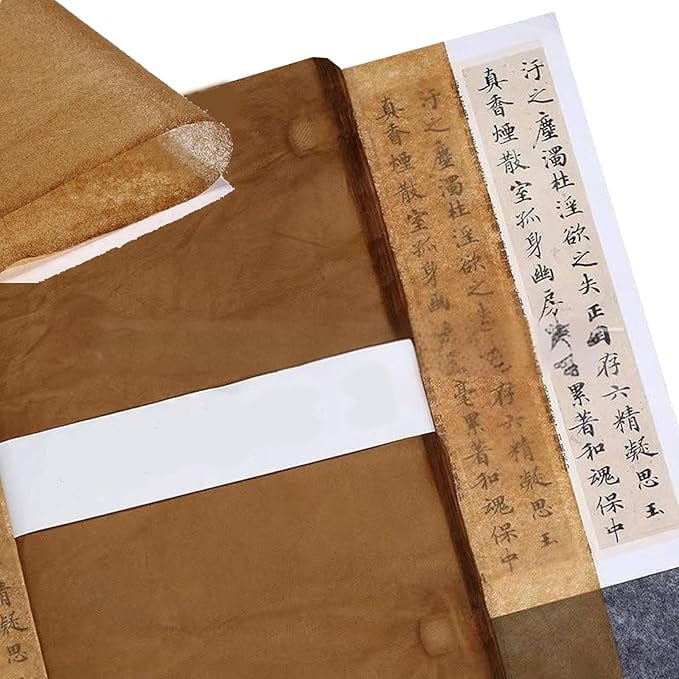 汙之塵濁杜淫欲之失正存六精凝思玉
真香煙散室孤身幽房累著和魂保中
汙之塵濁杜淫欲之存六精凝思玉
真香煙散室孤身幽毫累著和魂保中
凝思